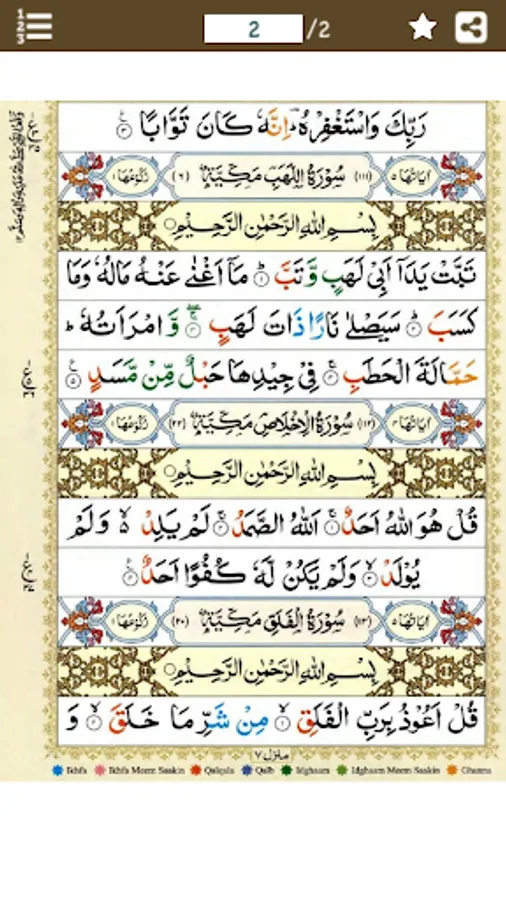 2 /2
رَبِّكَ وَاسْتَغْفِرْهُ ؕ اِنَّهٗ كَانَ تَوَّابًا ۟
اٰيَاتُهَا ۵ (۱۱۱) سُوْرَةُ اللَّهَبِ مَكِّيَّةٌ (۶) رُكُوْعُهَا ۱
بِسْمِ اللهِ الرَّحْمٰنِ الرَّحِيْمِ
تَبَّتْ يَدَاۤ اَبِيْ لَهَبٍ وَّتَبَّ ؕ مَاۤ اَغْنٰى عَنْهُ مَالُهٗ وَمَا
كَسَبَ ؕ سَيَصْلٰى نَارًا ذَاتَ لَهَبٍ ۚ وَّامْرَاَتُهٗ ؕ
حَمَّالَةَ الْحَطَبِ ۚ فِيْ جِيْدِهَا حَبْلٌ مِّنْ مَّسَدٍ
اٰيَاتُهَا ۴ (۱۱۲) سُوْرَةُ الْاِخْلَاصِ مَكِّيَّةٌ (۲۲) رُكُوْعُهَا ۱
بِسْمِ اللهِ الرَّحْمٰنِ الرَّحِيْمِ
قُلْ هُوَ اللهُ اَحَدٌ ۚ اَللهُ الصَّمَدُ ۚ لَمْ يَلِدْ ۙ وَلَمْ
يُوْلَدْ ۙ وَلَمْ يَكُنْ لَّهٗ كُفُوًا اَحَدٌ
اٰيَاتُهَا ۵ (۱۱۳) سُوْرَةُ الْفَلَقِ مَكِّيَّةٌ (۲۰) رُكُوْعُهَا ۱
بِسْمِ اللهِ الرَّحْمٰنِ الرَّحِيْمِ
قُلْ اَعُوْذُ بِرَبِّ الْفَلَقِ ۙ مِنْ شَرِّ مَا خَلَقَ ۙ وَ
منزل ۷
Ikhfa Ikhfa Meem Saakin Qalqala Qalb Idghaam Idghaam Meem Saakin Ghunna